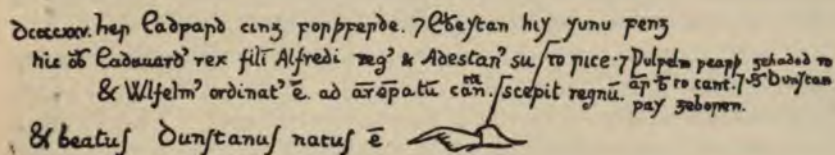 Dccccxxv. her Eadƿard cing forþferde. ⁊ Æþestan his sunu feng
hic ob̄ Eaduuard' rex filī Alfredi reg' & Adestan' su/ to rice · ⁊ Ƿulfelm ƿearþ gehadod to
& Wlfelm' ordinat' ē. ad arēpatū cān. /scepit regnū. to cant. ⁊ S̄ Dunſtan
ƿas geboren.
& beatuſ dunſtanuſ natuſ ē